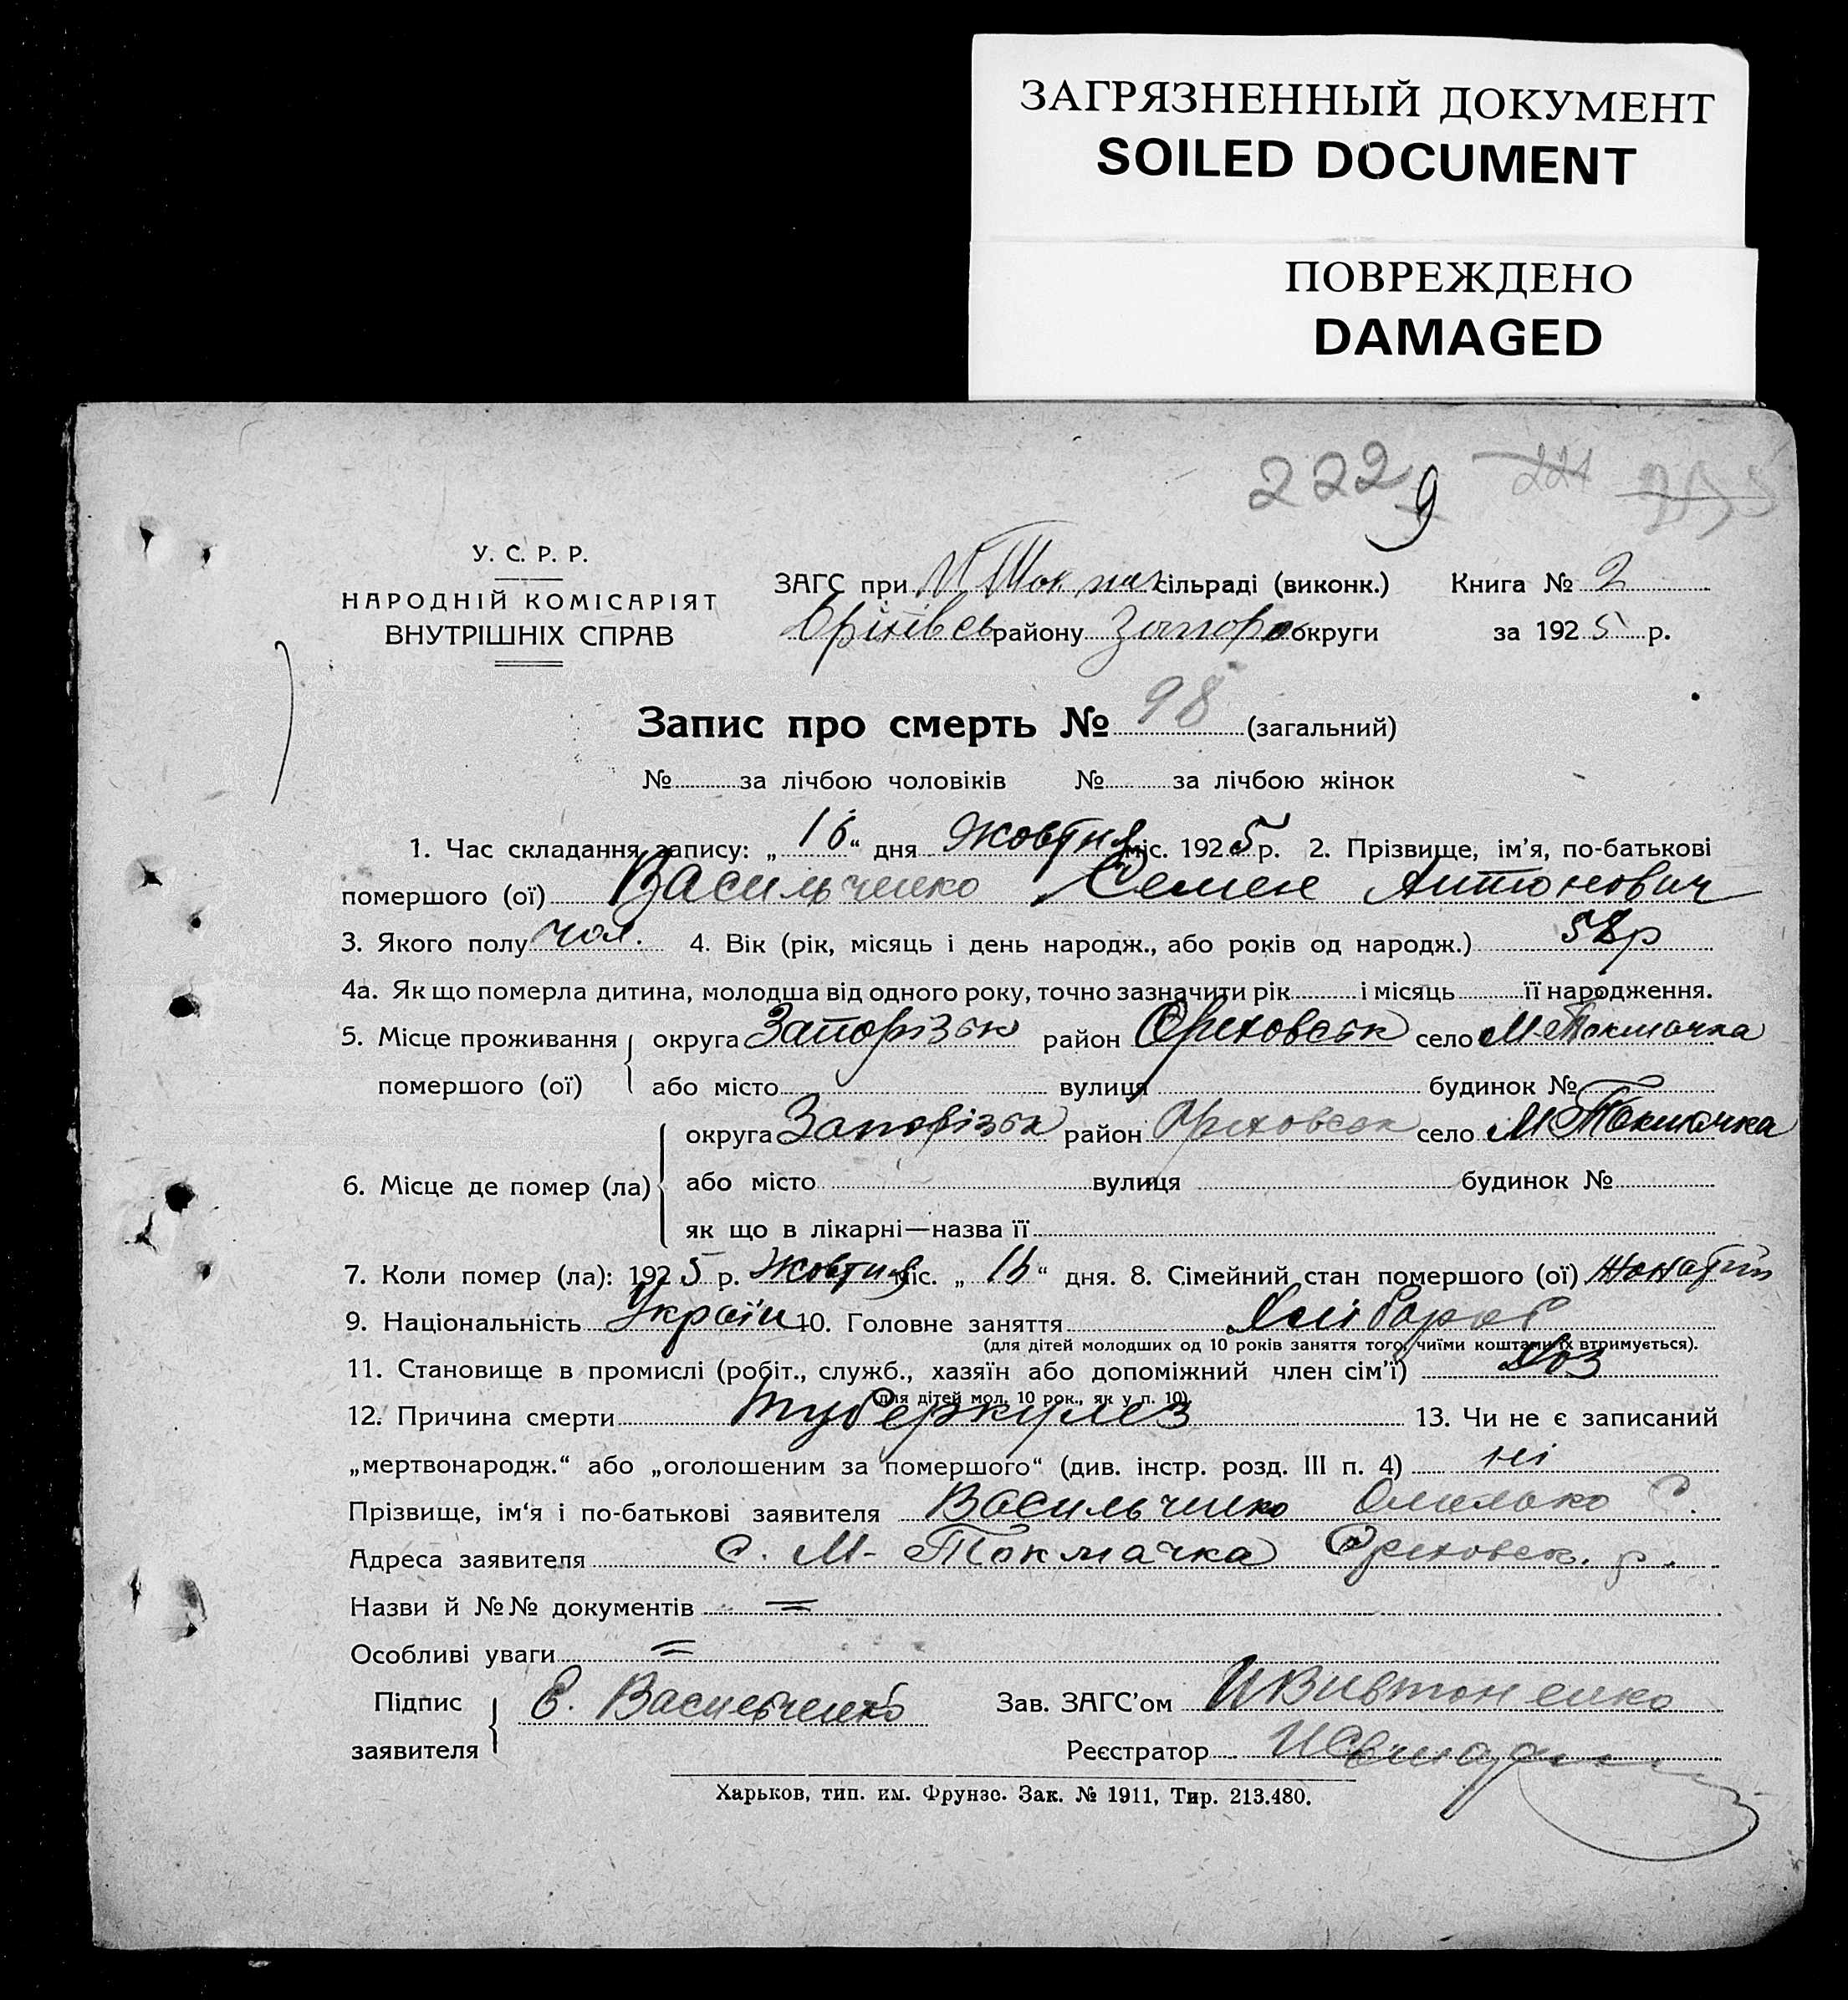 ЗАГРЯЗНЕННЫЙ ДОКУМЕНТ
SOILED DOCUMENT
ПОВРЕЖДЕНО
DAMAGED
222 9 221
У. С. Р. Р.
НАРОДНІЙ КОМІСАРІЯТ
ВНУТРІШНІХ СПРАВ
ЗАГС при М Токмач сільраді (виконк.) Книга № 2
Оріхівсь району Запорз округи за 1925 р.
Запис про смерть № 98 (загальний)
№ за лічбою чоловіків № за лічбою жінок
1. Час складання запису: „16“ дня Жовтня міс. 1925 р. 2. Прізвище, ім’я, по-батькові
помершого (ої) Васильченко Семен Антонович
3. Якого полу чол. 4. Вік (рік, місяць і день народж., або років од народж.) 52р
4а. Як що померла дитина, молодша від одного року, точно зазначити рік і місяць її народження.
5. Місце проживання округа Запорізьк район Ореховськ село М-Токмачка
помершого (ої) або місто вулиця будинок №
округа Запорізьк район Ореховськ село М Токмачка
6. Місце де помер (ла) або місто вулиця будинок №
як що в лікарні—назва її
7. Коли помер (ла): 1925 р. Жовтня міс. „16“ дня. 8. Сімейний стан помершого (ої) Жонатий
9. Національність Україн 10. Головне заняття Хлібороб
(для дітей молодших од 10 років заняття того, чиїми коштами їх втримується).
11. Становище в промислі (робіт., служб., хазяїн або допоміжний член сім’ї) Хоз
(для дітей мол. 10 рок., як у п. 10)
12. Причина смерти туберкулез 13. Чи не є записаний
„мертвонародж.“ або „оголошеним за помершого“ (див. інстр. розд. III п. 4) ні
Прізвище, ім‘я і по-батькові заявителя Васильченко Омелько С.
Адреса заявителя С. М-Токмачка Ореховськ. р.
Назви й №№ документів =
Особливі уваги =
Підпис заявителя Е. Васильченко Зав. ЗАГС’ом
Реєстратор
Харьков, тип. им. Фрунзе. Зак. № 1911, Тир. 213.480.